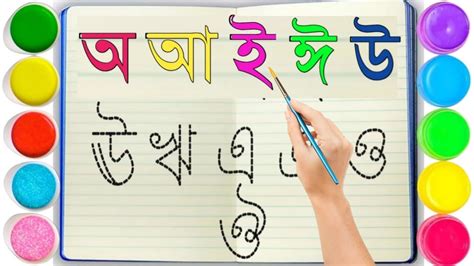 অ আ ই ঈ উ
ঊ ঋ এ ও
ঔ